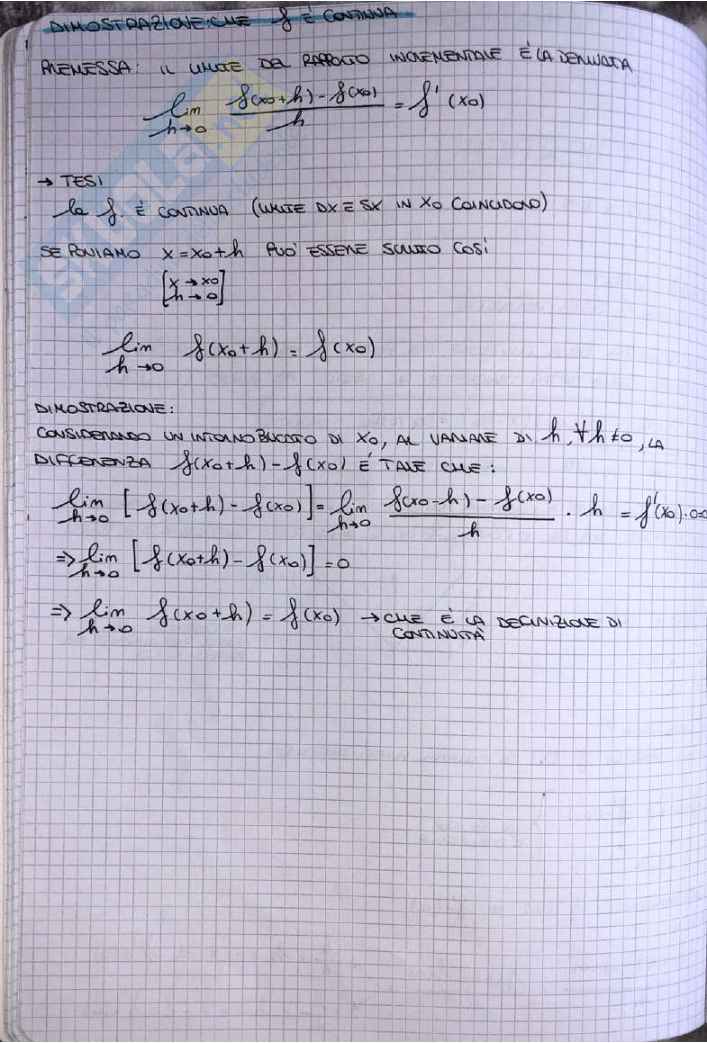 DIMOSTRAZIONE: CHE f È CONTINUA
PREMESSA: IL LIMITE DEL RAPPORTO INCREMENTALE È LA DERIVATA
lim h→0 f(x0+h)-f(x0) / h = f'(x0)
→ TESI
la f. È CONTINUA (LIMITE DX E SX IN X0 COINCIDONO)
SE PONIAMO X=X0+h PUÒ ESSERE SCRITTO COSÌ
[x→x0
h→0]
lim h→0 f(x0+h) = f(x0)
DIMOSTRAZIONE:
CONSIDERANDO UN INTORNO BUCATO DI X0, AL VARIARE DI h, ∀h≠0, LA
DIFFERENZA f(x0+h)-f(x0) È TALE CHE:
lim h→0 [f(x0+h)-f(x0)] = lim h→0 f(x0-h)-f(x0) / h · h = f'(x0)·0=0
⇒ lim h→0 [f(x0+h)-f(x0)] = 0
⇒ lim h→0 f(x0+h) = f(x0) → CHE È LA DEFINIZIONE DI
CONTINUITÀ